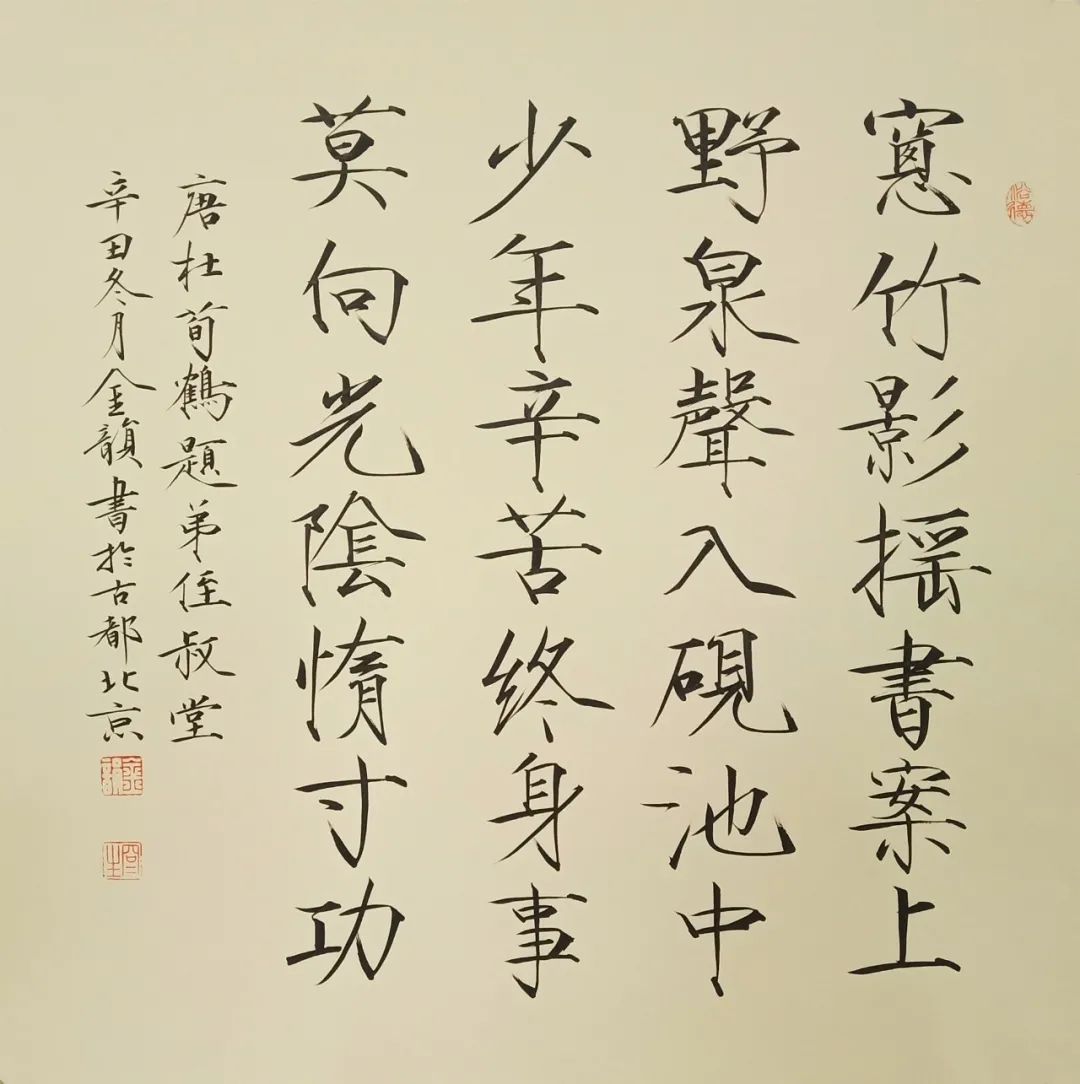 窻竹影摇書案上
野泉聲入硯池中
少年辛苦終身事
莫向光陰惰寸功
唐杜荀鶴題弟侄叔堂
辛丑冬月金韻書扵古都北京